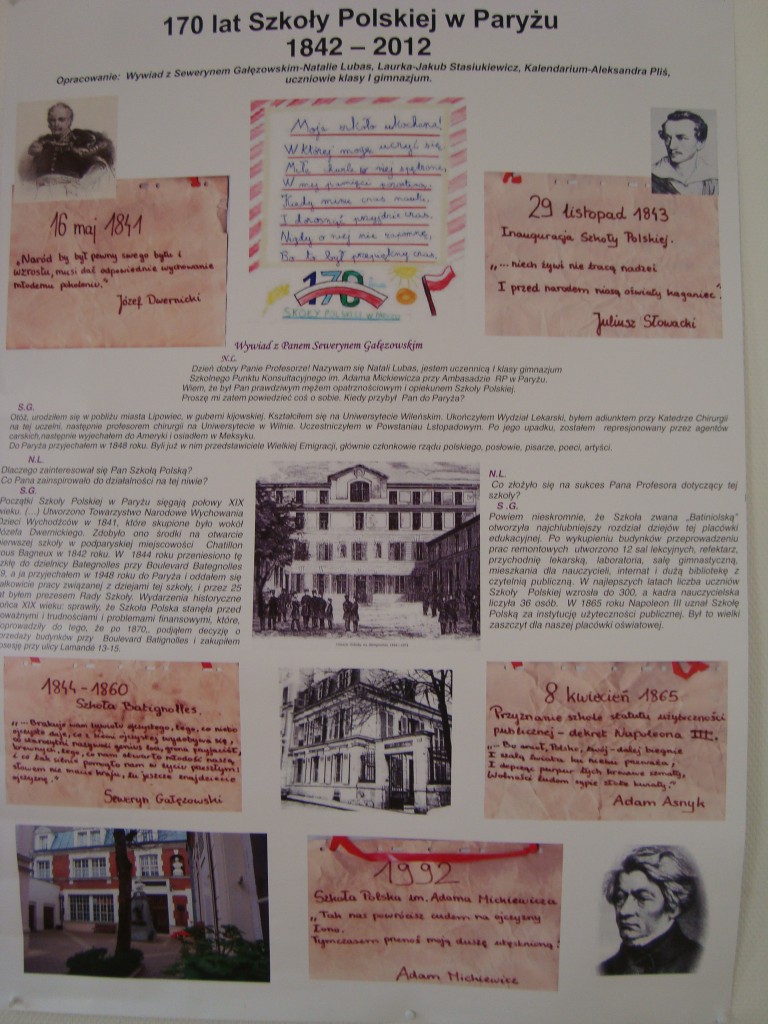 170 lat Szkoły Polskiej w Paryżu
1842 – 2012
Opracowanie: Wywiad z Sewerynem Gałęzowskim-Natalie Lubas, Laurka-Jakub Stasiukiewicz, Kalendarium-Aleksandra Pliś,
uczniowie klasy I gimnazjum.
Moja szkoło ukochana!
W której mogę uczyć się.
Miłe chwile w niej spędzone,
W mej pamięci
Kiedy minie czas nauki,
I dorosnąć przyjdzie czas,
Nigdy o niej nie zapomnę,
Bo to był przepiękny czas
170 lat
SZKOŁY POLSKIEJ W PARYŻU
16 maj 1841
„Naród by był pewny swego bytu i
wzrostu, musi dać odpowiednie wychowanie
młodemu pokoleniu."
Józef Dwernicki
29 listopad 1843
Inauguracja Szkoły Polskiej.
„...niech żywi nie tracą nadziei
I przed narodem niosą oświaty kaganiec"
Juliusz Słowacki
Wywiad z Panem Sewerynem Gałęzowskim
N.L.
Dzień dobry Panie Profesorze! Nazywam się Natali Lubas, jestem uczennicą I klasy gimnazjum
Szkolnego Punktu Konsultacyjnego im. Adama Mickiewicza przy Ambasadzie RP w Paryżu.
Wiem, że był Pan prawdziwym mężem opatrznościowym i opiekunem Szkoły Polskiej.
Proszę mi zatem powiedzieć coś o sobie. Kiedy przybył Pan do Paryża?
S.G.
Otóż, urodziłem się w pobliżu miasta Lipowiec, w guberni kijowskiej. Kształciłem się na Uniwersytecie Wileńskim. Ukończyłem Wydział Lekarski, byłem adiunktem przy Katedrze Chirurgii
na tej uczelni, następnie profesorem chirurgii na Uniwersytecie w Wilnie. Uczestniczyłem w Powstaniu Listopadowym. Po jego upadku, zostałem represjonowany przez agentów
carskich,następnie wyjechałem do Ameryki i osiadłem w Meksyku.
Do Paryża przyjechałem w 1848 roku. Byli już w nim przedstawiciele Wielkiej Emigracji, głównie członkowie rządu polskiego, posłowie, pisarze, poeci, artyści.
N.L.
Dlaczego zainteresował się Pan Szkołą Polską?
Co Pana zainspirowało do działalności na tej niwie?
S.G.
Początki Szkoły Polskiej w Paryżu sięgają połowy XIX
wieku. (...) Utworzono Towarzystwo Narodowe Wychowania
Dzieci Wychodźców w 1841, które skupione było wokół
Józefa Dwernickiego. Zdobyło ono środki na otwarcie
pierwszej szkoły w podparyskiej miejscowości Chatillon
sous Bagneux w 1842 roku. W 1844 roku przemesiono tę
szkłę do dzielnicy Bategnolles przy Boulevard Bategnolles
, a ja przyjechałem w 1948 roku do Paryża i oddałem się
całkowicie pracy związanej z dziejami tej szkoły, i przez 25
lat byłem prezesem Rady Szkoły. Wydarzenia historyczne
końca XIX wieku: sprawiły, że Szkoła Polska stanęła przed
poważnymi i trudnościami i problemami finansowymi, które,
doprowadziły do tego, że po 1870,, podjąłem decyzję o
sprzedaży budynków przy Boulevard Batignolles i zakupiłem
posesję przy ulicy Lamandé 13-15.
N.L.
Co złożyło się na sukces Pana Profesora dotyczący tej
szkoły?
S .G.
Powiem nieskromnie, że Szkoła zwana „Batiniolską"
otworzyła najchlubniejszy rozdział dziejów tej placówki
edukacyjnej. Po wykupieniu budynków przeprowadzeniu
prac remontowych utworzono 12 sal lekcyjnych, refektarz,
przychodnię lekarską, laboratoria, salę gimnastyczną,
mieszkania dla nauczycieli, internat i dużą bibliotekę z
czytelnią publiczną. W najlepszych latach liczba uczniów
Szkoły Polskiej wzrosła do 300, a kadra nauczycielska
liczyła 36 osób. W 1865 roku Napoleon III uznał Szkołę
Polską za instytucję użyteczności publicznej. Był to wielki
zaszczyt dla naszej placówki oświatowej.
1844 - 1860
Szkoła Batignolles.
Seweryn Gałęzowski
8 kwiecień 1865
Przyznanie szkole statutu użyteczności
publicznej - dekret Napoleona III.
Adam Asnyk
1992
Szkoła Polska im. Adama Mickiewicza
„Tak nas powrócisz cudem na ojczyzny
łono.
Tymczasem przenoś moją duszę utęsknioną"
Adam Mickiewicz